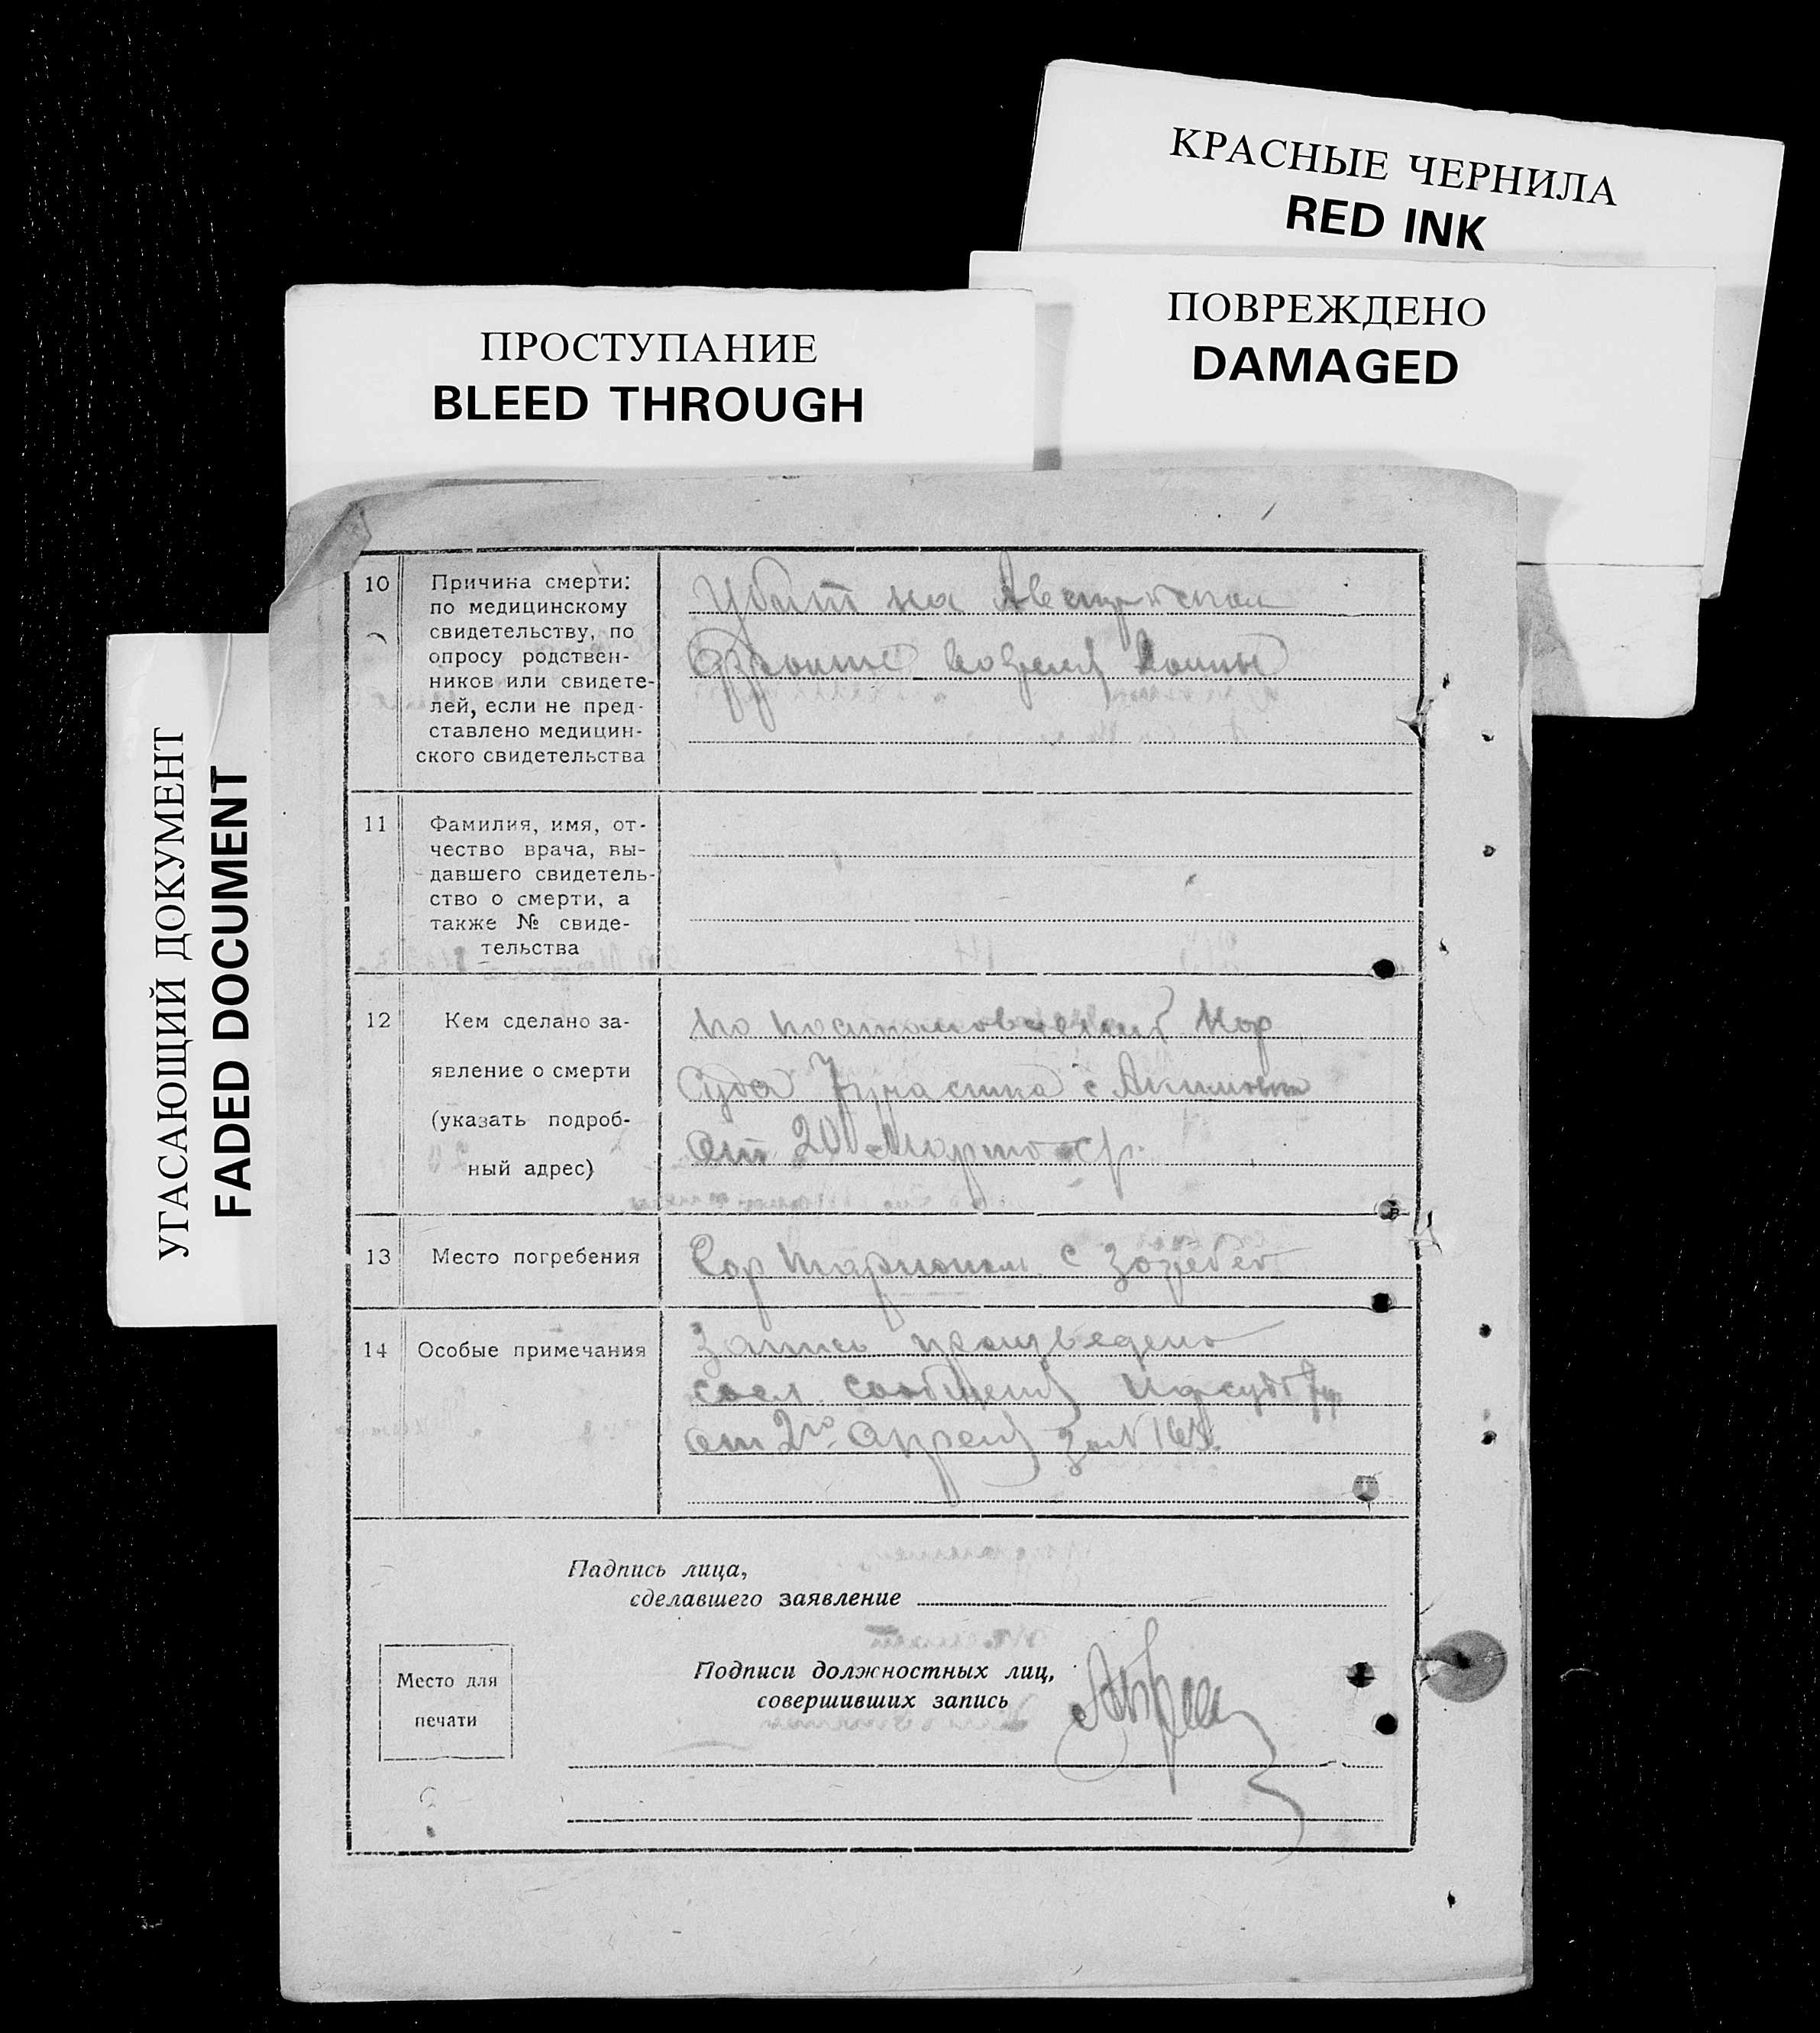 КРАСНЫЕ ЧЕРНИЛА
RED INK
ПОВРЕЖДЕНО
DAMAGED
ПРОСТУПАНИЕ
BLEED THROUGH
УГАСАЮЩИЙ ДОКУМЕНТ
FADED DOCUMENT
10
Причина смерти:
по медицинскому
свидетельству, по
опросу родствен-
ников или свидете-
лей, если не пред-
ставлено медицин-
ского свидетельства
Убит на Австрийском
фронте во время войны
11
Фамилия, имя, от-
чество врача, вы-
давшего свидетель-
ство о смерти, а
также № свиде-
тельства
12
Кем сделано за-
явление о смерти
(указать подроб-
ный адрес)
по постановлению Нар
Суда 7 участка с
от 20 Марта с/г.
13
Место погребения
с
14
Особые примечания
Запись произведено
сообщения Нарсуда 7
от 2го апреля за №
Падпись лица,
сделавшего заявление
Место для
печати
Подписи должностных лиц,
совершивших запись